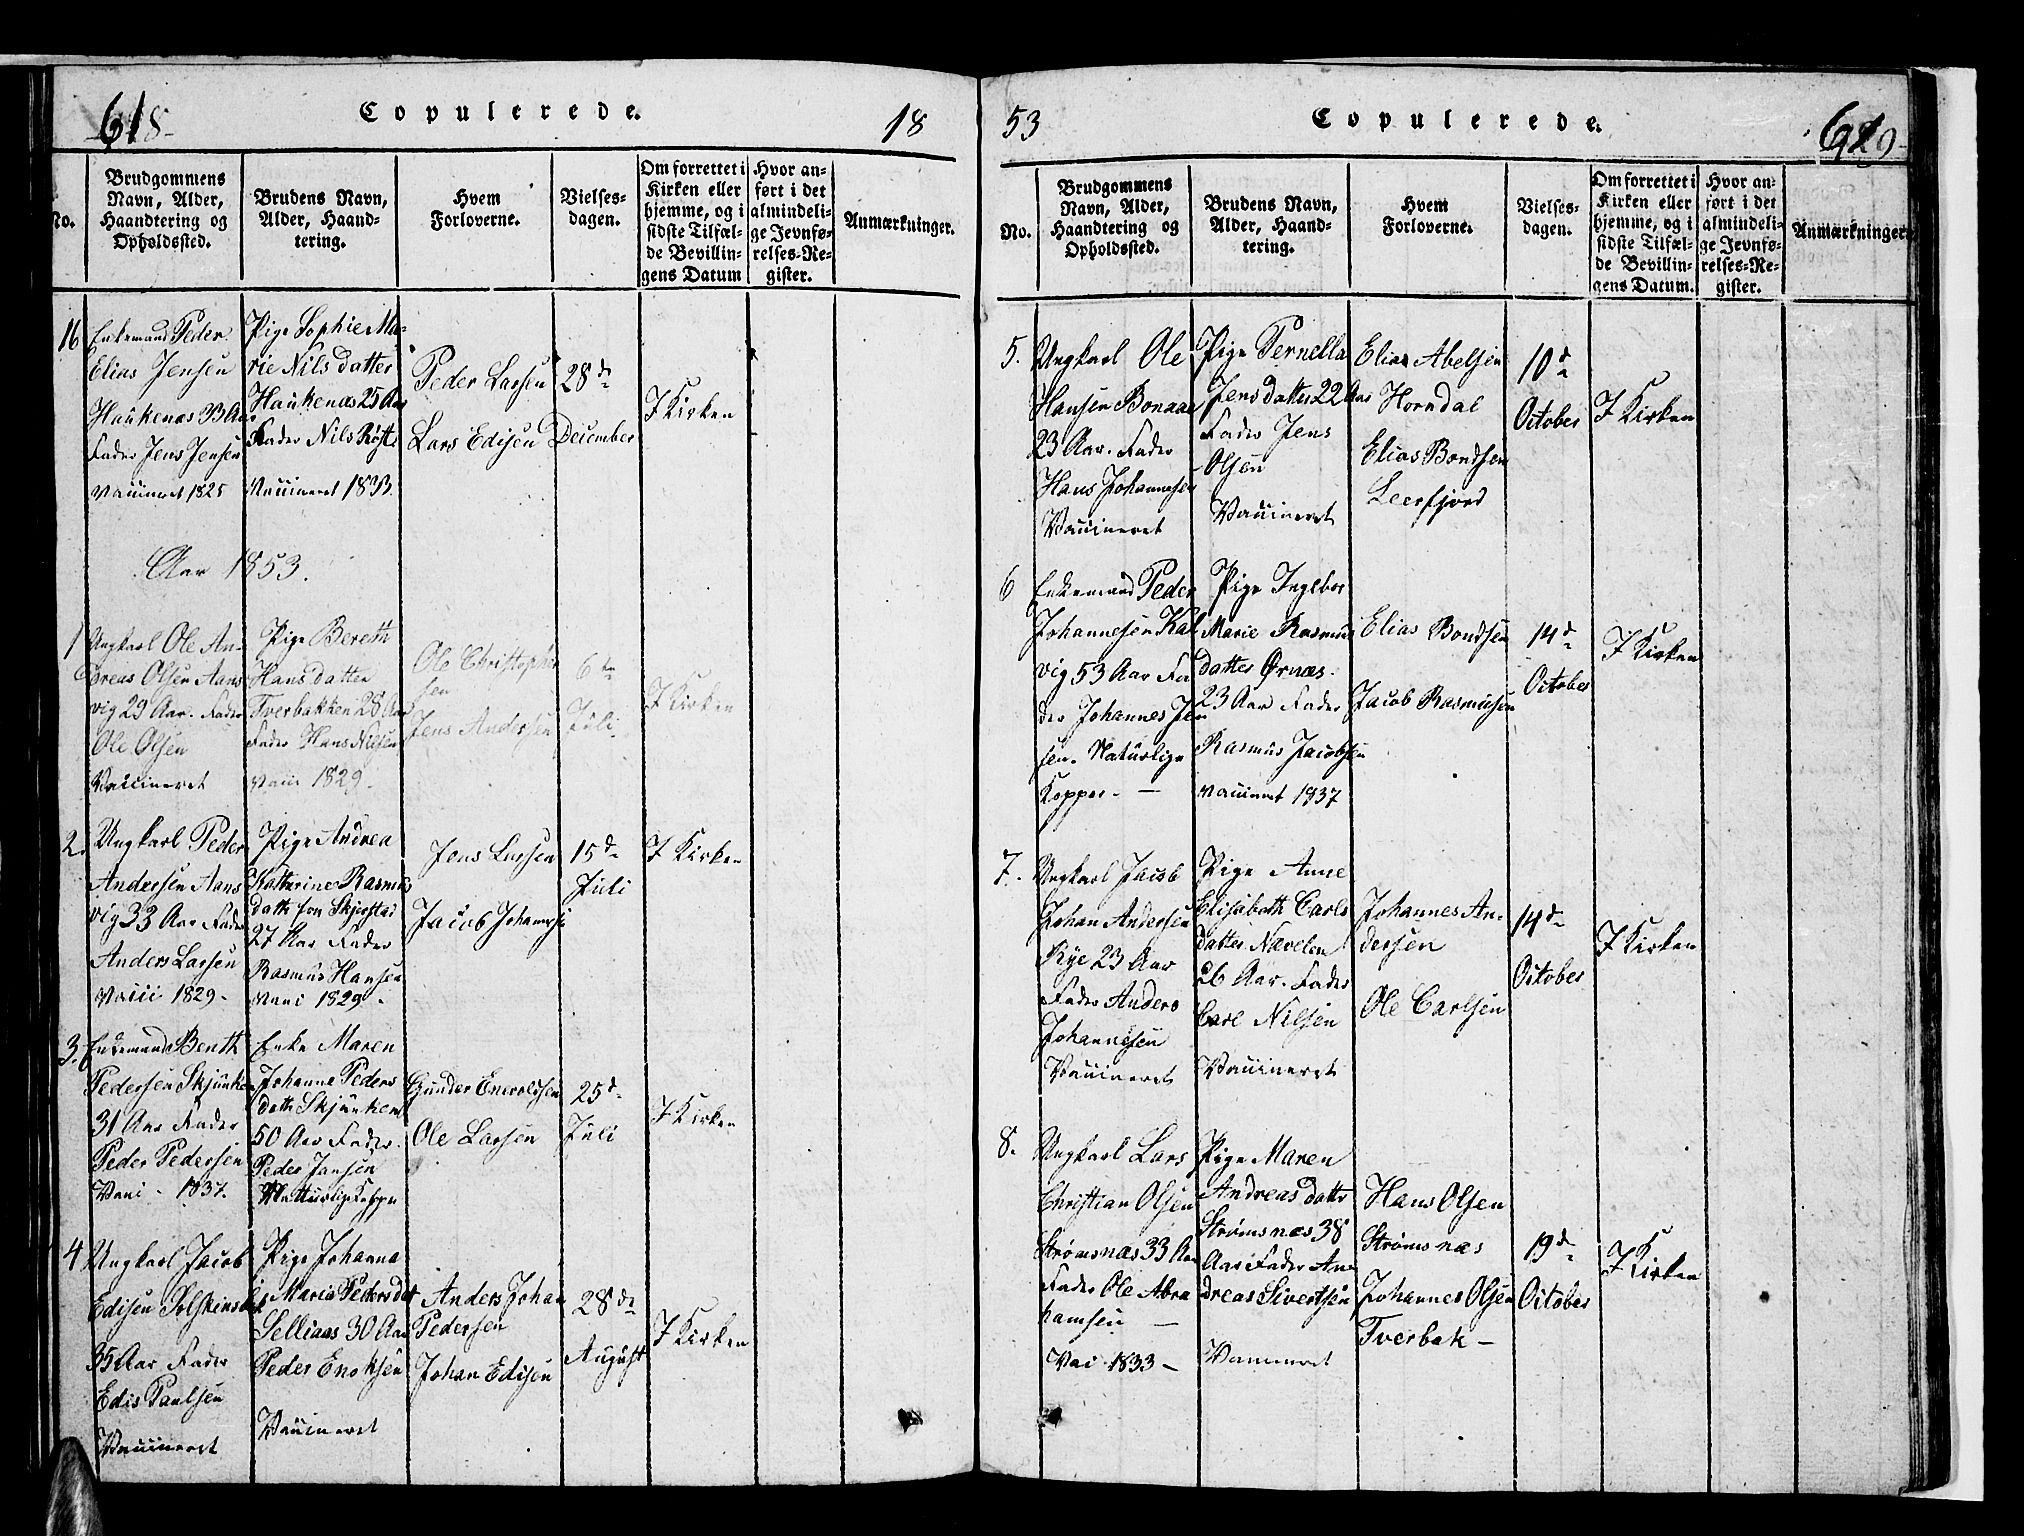 61
Copulerede.
18
No.
Brudgommens
Navn, Alder,
Haandtering og
Opholdssted.
Brudens Navn,
Alder, Haand-
tering.
Hvem
Forloverne.
Vielses-
dagen.
Om forrettet i
Kirken eller
hjemme, og i
sidste Tilfæl-
de Bevillin-
gens Datum
Hvor an-
ført i det
almindeli-
ge Jevnfø-
relses-Re-
gister.
Anmærkninger.
16
Enkemand Peder
Elias Jensen
Haukenæs
Fader Jens Jensen
Vaccineret 1825
Pige Sophie Ma-
rie Nilsdatter
Haukenæs 25 Aar
Fader Nils
Vaccineret 1833.
Peder Larsen
Lars Edisen
28de
December
I Kirken
Aar 1853.
1
Ungkarl Ole An-
dreas Olsen Aans
vig 29 Aar. Fader
Ole Olsen
Vaccineret
Pige Bereth
Hansdatter
Tverbakken 28 Aar
Fader Hans Nilsen
Vacci 1829.
Ole Christopher
sen
Jens Andersen
6te
Juli
I Kirken
2.
Ungkarl Peder
Andersen Aans
vig 33 Aar Fader
Anders Larsen
Vacci 1829-
Pige Andrea
Katherine Rasmus
datter fra Skjerstad
27 Aar Fader
Rasmus Hansen
Vacci 1829-
Jens Larsen
Jacob Johannesen
15de
Juli
I Kirken
3.
Enkemand Benth
Pedersen
31 Aar Fader
Peder Pedersen
Vacci - 1837.
Enke Maren
Johanne Peders
datter
50 Aar Fader
Peder Jansen
Naturlige Kopper
Gunder Enevoldsen
Ole Larsen
25de
Juli
I Kirken
4
Ungkarl Jacob
Edisen
35 Aar Fader
Edis Paulsen
Vaccineret
Pige Johanna
Maria Pedersdat
Selliaas 30 Aar
Peder Enoksen
Vaccineret
Anders Johan
Pedersen
Johan Edisen
28de
August
I Kirken
53
Copulerede.
No.
Brudgommens
Navn, Alder,
Haandtering og
Opholdssted.
Brudens Navn,
Alder, Haand-
tering.
Hvem
Forloverne.
Vielses-
dagen.
Om forrettet i
Kirken eller
hjemme, og i
sidste Tilfæl-
de Bevillin-
gens Datum.
Hvor an-
ført i det
almindeli-
ge Jevnfø-
relses-Re-
gister.
Anmærkninger.
5.
Ungkarl Ole
Hansen Bonaae
23 Aar. Fader
Hans Johannesen
Vaccineret
Pige Pernella
Jensdatter 22 Aar
Fader Jens
Olsen
Vaccineret
Elias Abelsen
Horndal
Elias Bondsen
Leerfjord
10de
October
I Kirken
6
Enkemand Peder
Johannesen Kal
vig 53 Aar Fa
der Johannes Jen
sen. Naturlige
Kopper. —
Pige Ingebor
Marie Rasmus
datter Ørnæs.
23 Aar Fader
Rasmus Jacobsen
Vaccineret 1837
Elias Bondsen
Jacob Rasmusen
14de
October
I Kirken
7.
Ungkarl Jacob
Johan Andersen
Rye 23 Aar
Fader Anders
Johannesen
Vaccineret
Pige Anne
Elisabeth Carls
datter Navelen
26 Aar. Fader
Carl Nilsen
Vaccineret
Johannes An-
dersen
Ole Carlsen
14de
October
I Kirken
8.
Ungkarl Lars
Christian Olsen
Strømsnæs 33 Aar
Fader Ole Abra
hamsen —
Vac 1833 —
Pige Maren
Andreasdattr
Strømsnæs 38
Aar Fader An
dreas Sivertsen
Vaccineret
Hans Olsen
Strømsnæs
Johannes Olsen
Tverbak —
19de
October
I Kirken